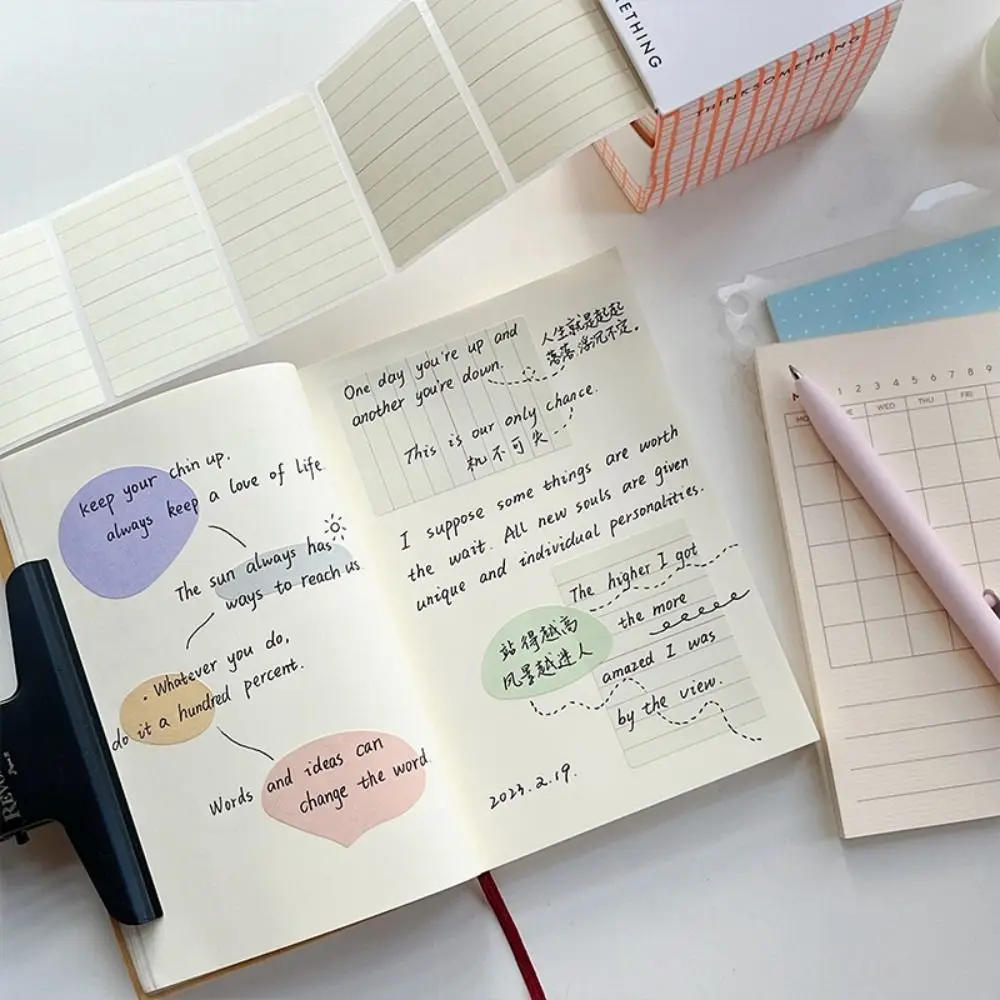 ETHING
THINKSOMETHING
keep your chin up.
always keep a love of life.
The sun always has
ways to reach us.
· Whatever you do,
do it a hundred percent.
Words and ideas can
change the word.
One day you're up and
another you're down.
人生就是起起
落落,浮沉不定。
This is our only chance.
机不可失
I suppose some things are worth
the wait. All new souls are given
unique and individual personalities.
The higher I got
the more
amazed I was
by the view.
站得越高
风景越迷人
2023.2.19.
1 2 3 4 5 6 7 8 9
WED THU FRI